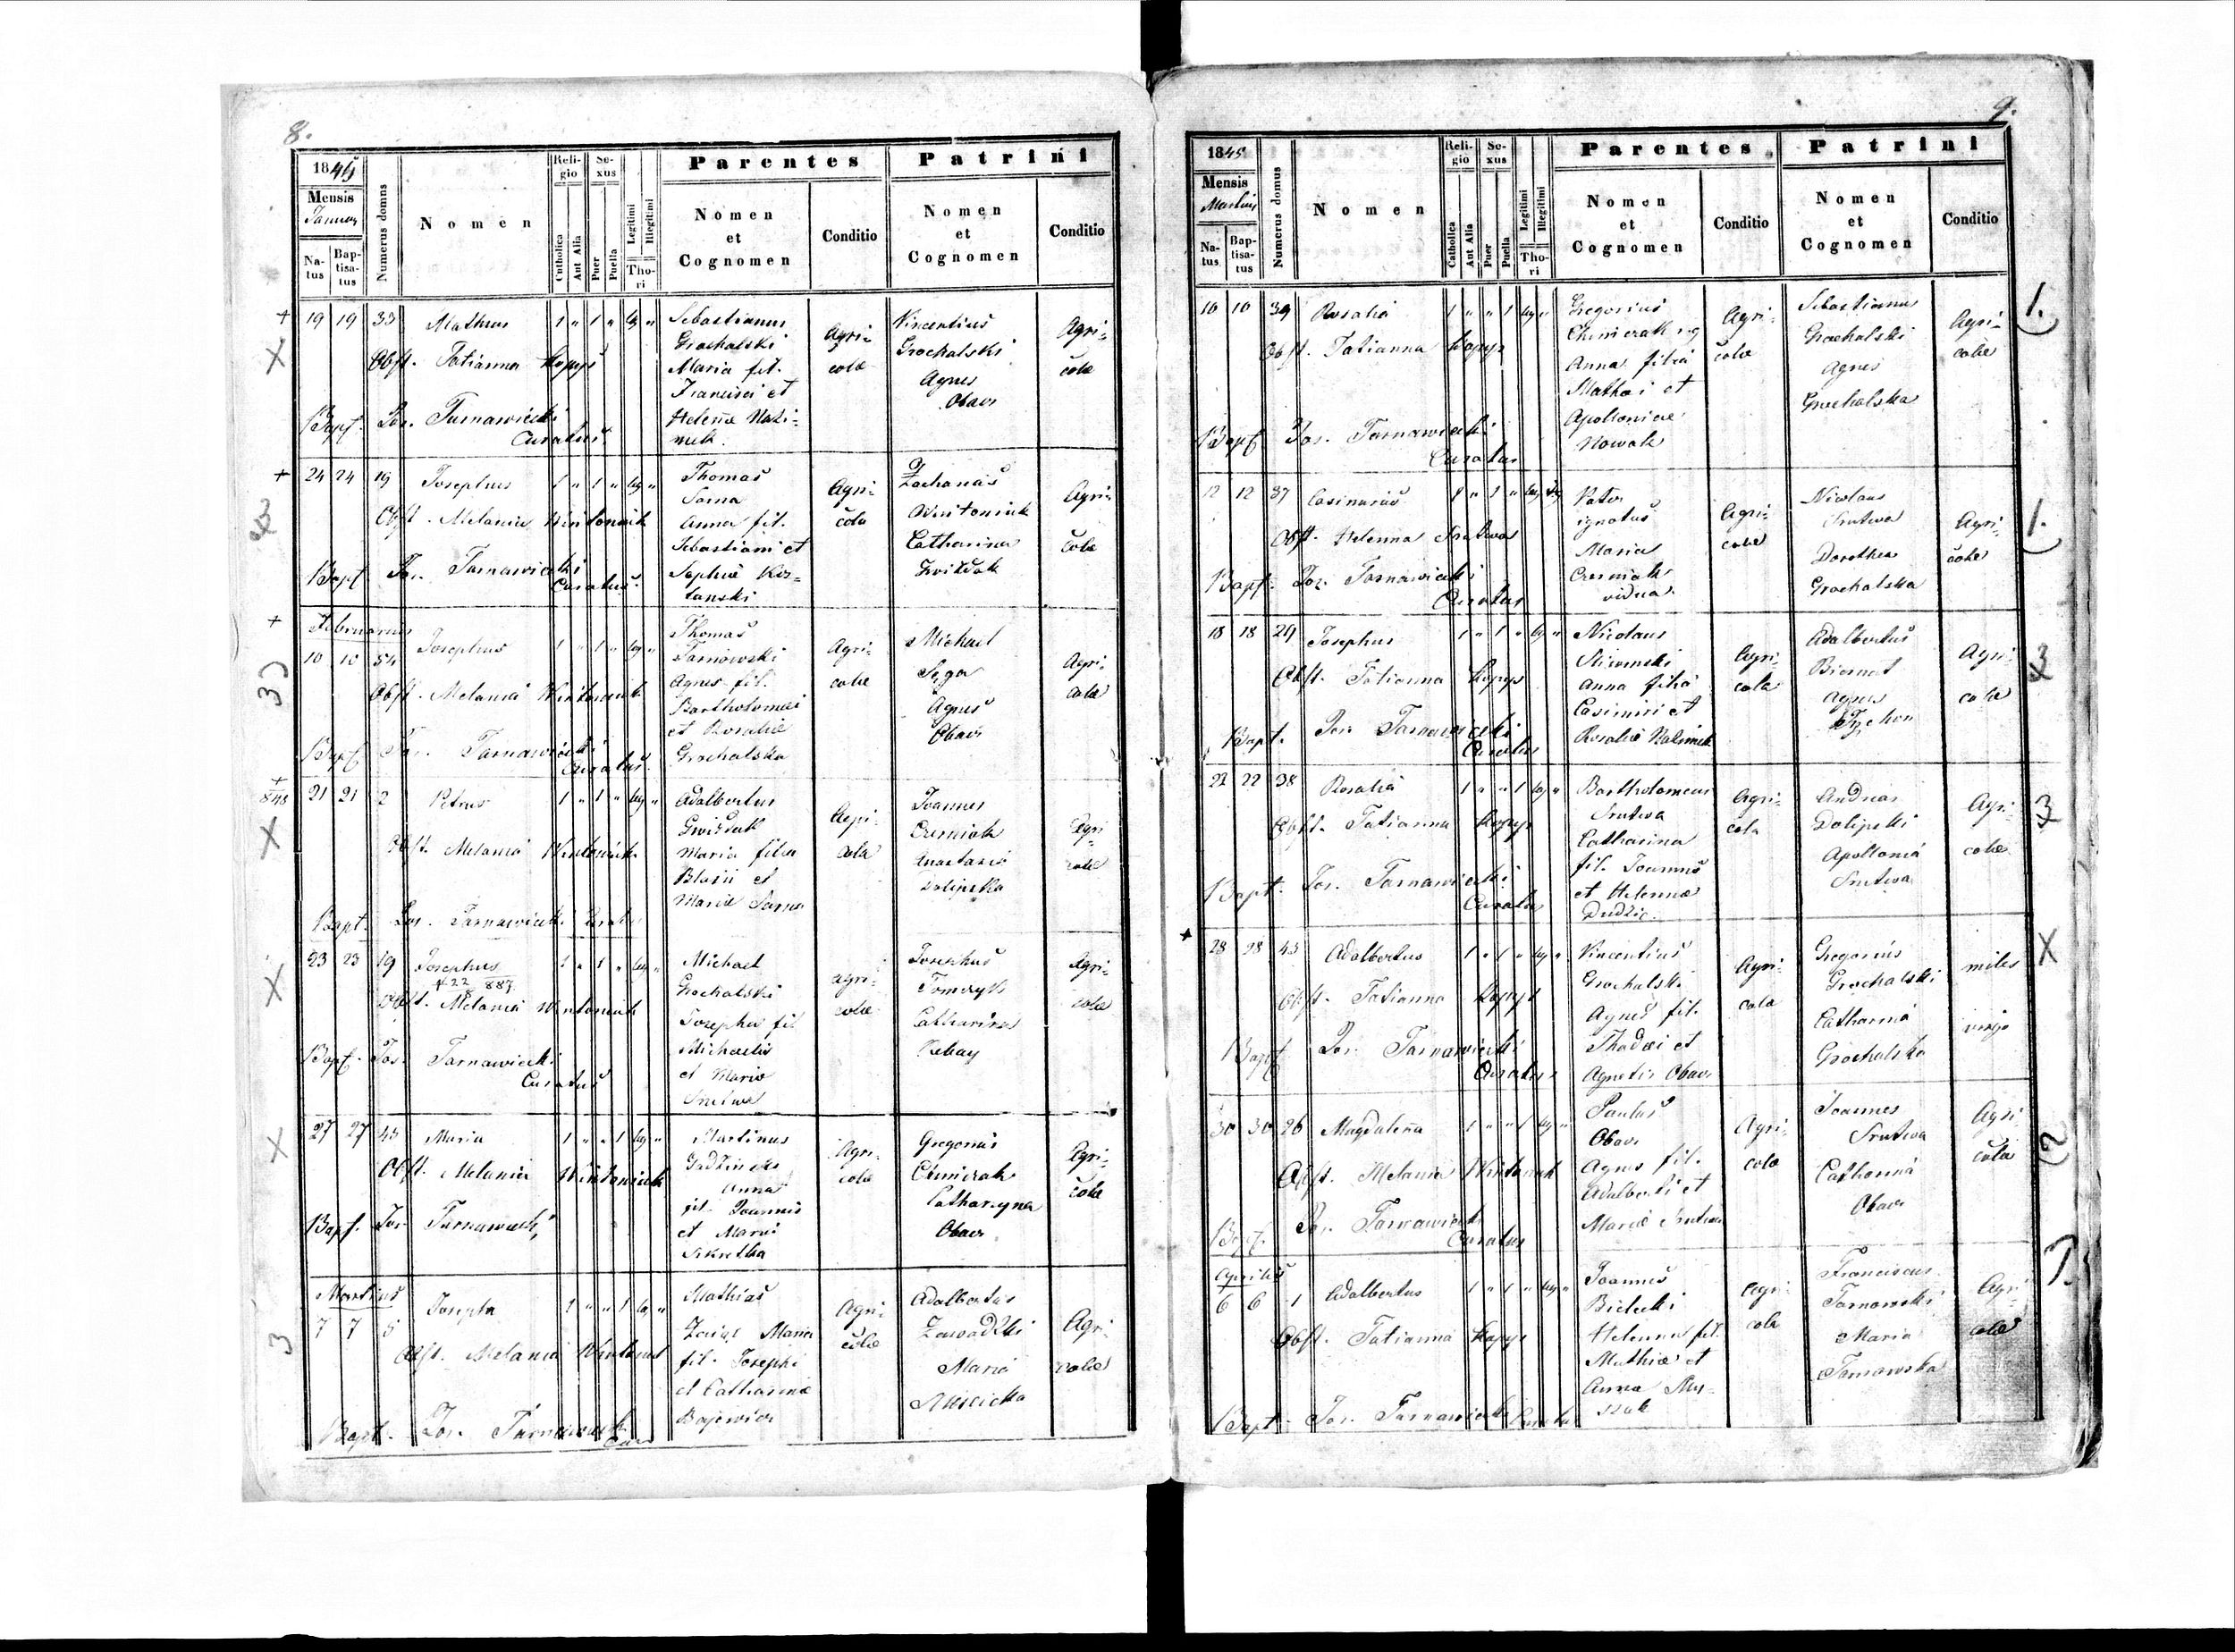 8.
1845
Mensis
Januar
Natus
Baptisatus
Numerus domus
Nomen
Religio
Catholica
Aut Alia
Sexus
Puer
Puella
Legitimi
Illegitimi
Thori
Parentes
Nomen et Cognomen
Conditio
Patrini
Nomen et Cognomen
Conditio
19 19 33 Matheus 1 " 1 " leg "
Obst. Tatianna Kopyś
Bapt. Jos. Tarnawiecki
Curatus
Sebastianus
Grochalski
Maria fil.
Francisci et
Helenæ
Agri-
colæ
Vincentius
Grochalski
Agnes
Obavs
Agri-
colæ
24 24 19 Josephus 1 " 1 " leg "
Obst. Melania Wintoniak
Bapt. Jos. Tarnawiecki
Curatus
Thomas
Sarna
Anna fil.
Sebastiani et
Sophiæ
Agri-
cola
Zacharias
Wintoniak
Catharina
Agri-
colæ
Februarius
10 10 54 Josephus 1 " 1 " leg "
Obst. Melania Wintoniak
Bapt. Jos. Tarnawiecki
Curatus
Thomas
Tarnowski
Agnes fil.
Bartholomæi
et Rosaliæ
Grochalska
Agri-
colæ
Michael
Sega
Agnes
Obavs
Agri-
colæ
21 21 2 Petrus 1 " 1 " leg "
Obst. Melania Wintoniak
Bapt. Jos. Tarnawiecki Curatus
Adalbertus
Gwiżdak
Maria filia
Blasii et
Mariæ Sarna
Agri-
cola
Joannes
Czerniak
Anastasia
Dolipska
Agri-
colæ
23 23 19 Josephus 1 " 1 " leg "
Obst. Melania Wintoniak
Bapt. Jos. Tarnawiecki
Curatus
Michael
Grochalski
Josepha fil
Michaelis
et Mariæ
Srutwa
Agri-
colæ
Josephus
Tomczyk
Catharina
Kebay
Agri-
colæ
27 27 43 Maria 1 " " 1 leg "
Obst. Melania Wintoniak
Bapt. Jos. Tarnawiecki
Martinus
Anna
fil. Joannis
et Mariæ
Agri-
colæ
Gregorius
Chmierak
Catharzyna
Obavs
Agri-
colæ
Martius
7 7 5 Josepha 1 " " 1 leg "
Obst. Melania
Bapt. Jos. Tarnawiecki
Cur
Mathias
Maria
fil. Josephi
et Catharinæ
Agri-
colæ
Adalbertus
Zawadzki
Maria
Agri-
colæ
9.
1845
Mensis
Martius
Natus
Baptisatus
Numerus domus
Nomen
Religio
Catholica
Aut Alia
Sexus
Puer
Puella
Legitimi
Illegitimi
Thori
Parentes
Nomen et Cognomen
Conditio
Patrini
Nomen et Cognomen
Conditio
10 10 39 Rosalia 1 " " 1 leg "
Obst. Tatianna Kopyś
Bapt. Jos. Tarnawiecki
Curatus
Gregorius
Chmierak
Anna filia
Mathæi et
Apolloniæ
Nowak
Agri-
colæ
Sebastianus
Grochalski
Agnes
Grochalska
Agri-
colæ
12 12 37 Casimirus 1 " 1 "
Obst. Helenna Srutwa
Bapt. Jos. Tarnawiecki
Curatus
Pater
ignotus
Maria
Czerniak
vidua
Agri-
colæ
Nicolaus
Srutwa
Dorothea
Grochalska
Agri-
colæ
18 18 29 Josephus 1 " 1 " leg "
Obst. Tatianna Kopyś
Bapt. Jos. Tarnawiecki
Curatus
Nicolaus
Anna filia
Casimiri et
Rosaliæ
Agri-
cola
Adalbertus
Biernat
Agnes
Agri-
colæ
22 22 38 Rosalia 1 " " 1 leg "
Obst. Tatianna Kopyś
Bapt. Jos. Tarnawiecki
Curatus
Bartholomeus
Srutwa
Catharina
fil. Joannis
et Helennæ
Dudzic
Agri-
cola
Andreas
Dolipski
Apollonia
Srutwa
Agri-
colæ
28 28 43 Adalbertus 1 " 1 " leg "
Obst. Tatianna Kopyś
Bapt. Jos. Tarnawiecki
Curatus
Vincentius
Grochalski
Agnes fil.
Thadæi et
Agnetis Obavs
Agri-
cola
Gregorius
Grochalski
Catharina
Grochalska
miles
virgo
30 30 26 Magdalena 1 " " 1 leg "
Obst. Melania Wintoniak
Bapt. Jos. Tarnawiecki
Curatus
Paulus
Obavs
Agnes fil.
Adalberti et
Mariæ Srutwa
Agri-
colæ
Joannes
Srutwa
Catharina
Obavs
Agri-
cola
Aprilis
6 6 1 Adalbertus 1 " 1 " leg "
Obst. Tatianna Kopyś
Bapt. Jos. Tarnawiecki Curatus
Joannes
Bielecki
Helenna fil.
Mathiæ et
Annæ
Agri-
colæ
Franciscus
Tarnowski
Maria
Tarnowska
Agri-
colæ